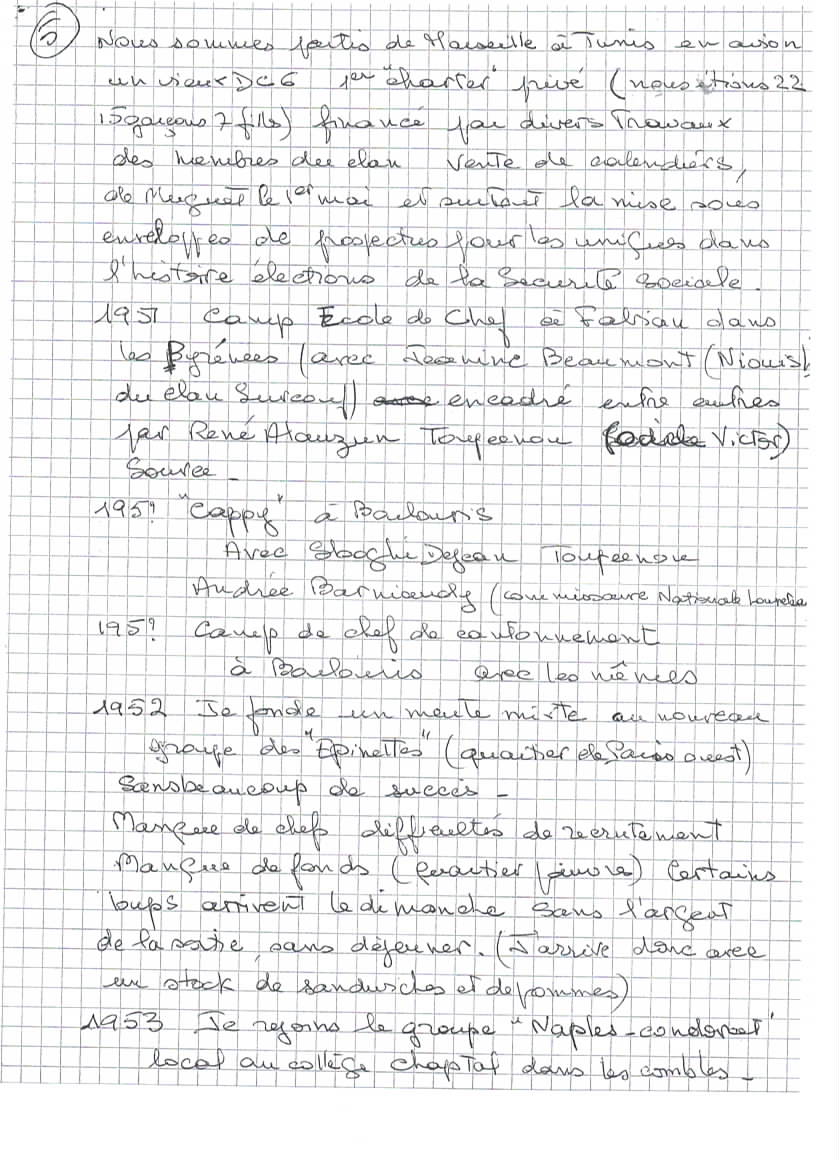 5 Nous sommes partis de Marseille à Tunis en avion
un vieux DC6 1er "charter" privé (nous étions 22
15 garçons 7 filles) financé par divers Travaux
des membres du clan vente de calendriers,
de Muguet le 1er mai et surtout la mise sous
enveloppes de prospectus pour les uniques dans
l'histoire élections de la Sécurité Sociale.
1951 Camp Ecole de Chef à dans
les Pyrénées (avec Jeanine Beaumont (Niouis)
du clan Surcouf) encadré entre autres
par René Toupeenou Victor)
Source -
195? "Cappy" à
Avec Sboghi Dejean Toupeenou
Andrée Barniaudy (commissaire Nationale
195? Camp de chef de cantonnement
à avec les mêmes
1952 Je fonde un meute mixte au nouveau
groupe des "Epinettes" (quartier de Paris ouest)
Sans beaucoup de succès -
Manque de chefs difficultés de recrutement
Manque de fonds (Quartier pauvre) Certains
loups arrivent le dimanche sans l'argent
de la sortie, sans déjeuner. (J'arrive donc avec
un stock de sandwiches et de pommes)
1953 Je rejoins le groupe "Naples-condorcet"
local au collège chaptal dans les combles -